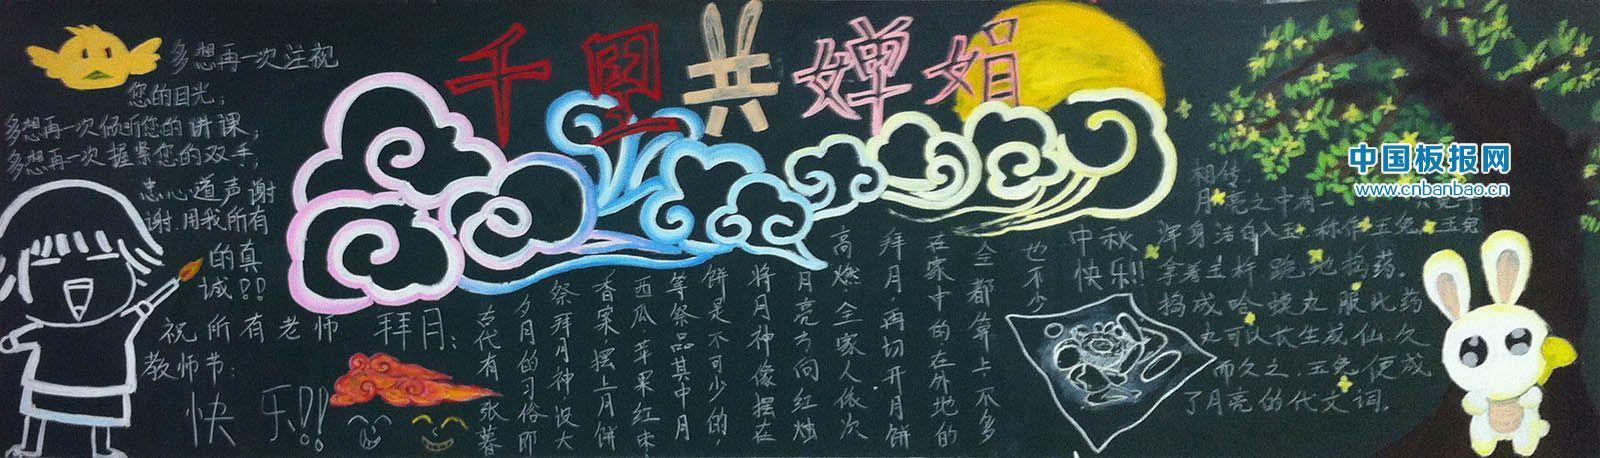 千里共婵娟
多想再一次注视
您的目光；
多想再一次倾听您的讲课；
多想再一次握紧您的双手，
忠心道声谢
谢.用我所有
的真
诚!!
祝所有老师
教师节:
快乐!!
拜月:
古代有张暮
夕月的习俗即
祭拜月神设大
香案,摆上月饼
西瓜 苹果红枣
等祭品其中月
饼是不可少的,
将月神像摆在
月亮方向红烛
高燃.全家人依次
拜月,再切开月饼
在家中的在外地的
全都算上不多
也不少
中秋
快乐!!
相传
月亮之中有一
浑身洁白入玉,称作玉兔.玉兔
拿着玉杵 跪地捣药.
捣成哈蟆丸 服此药
丸可以长生成仙.久
而久之,玉兔便成
了月亮的代文词.
中国板报网
www.cnbanbao.cn